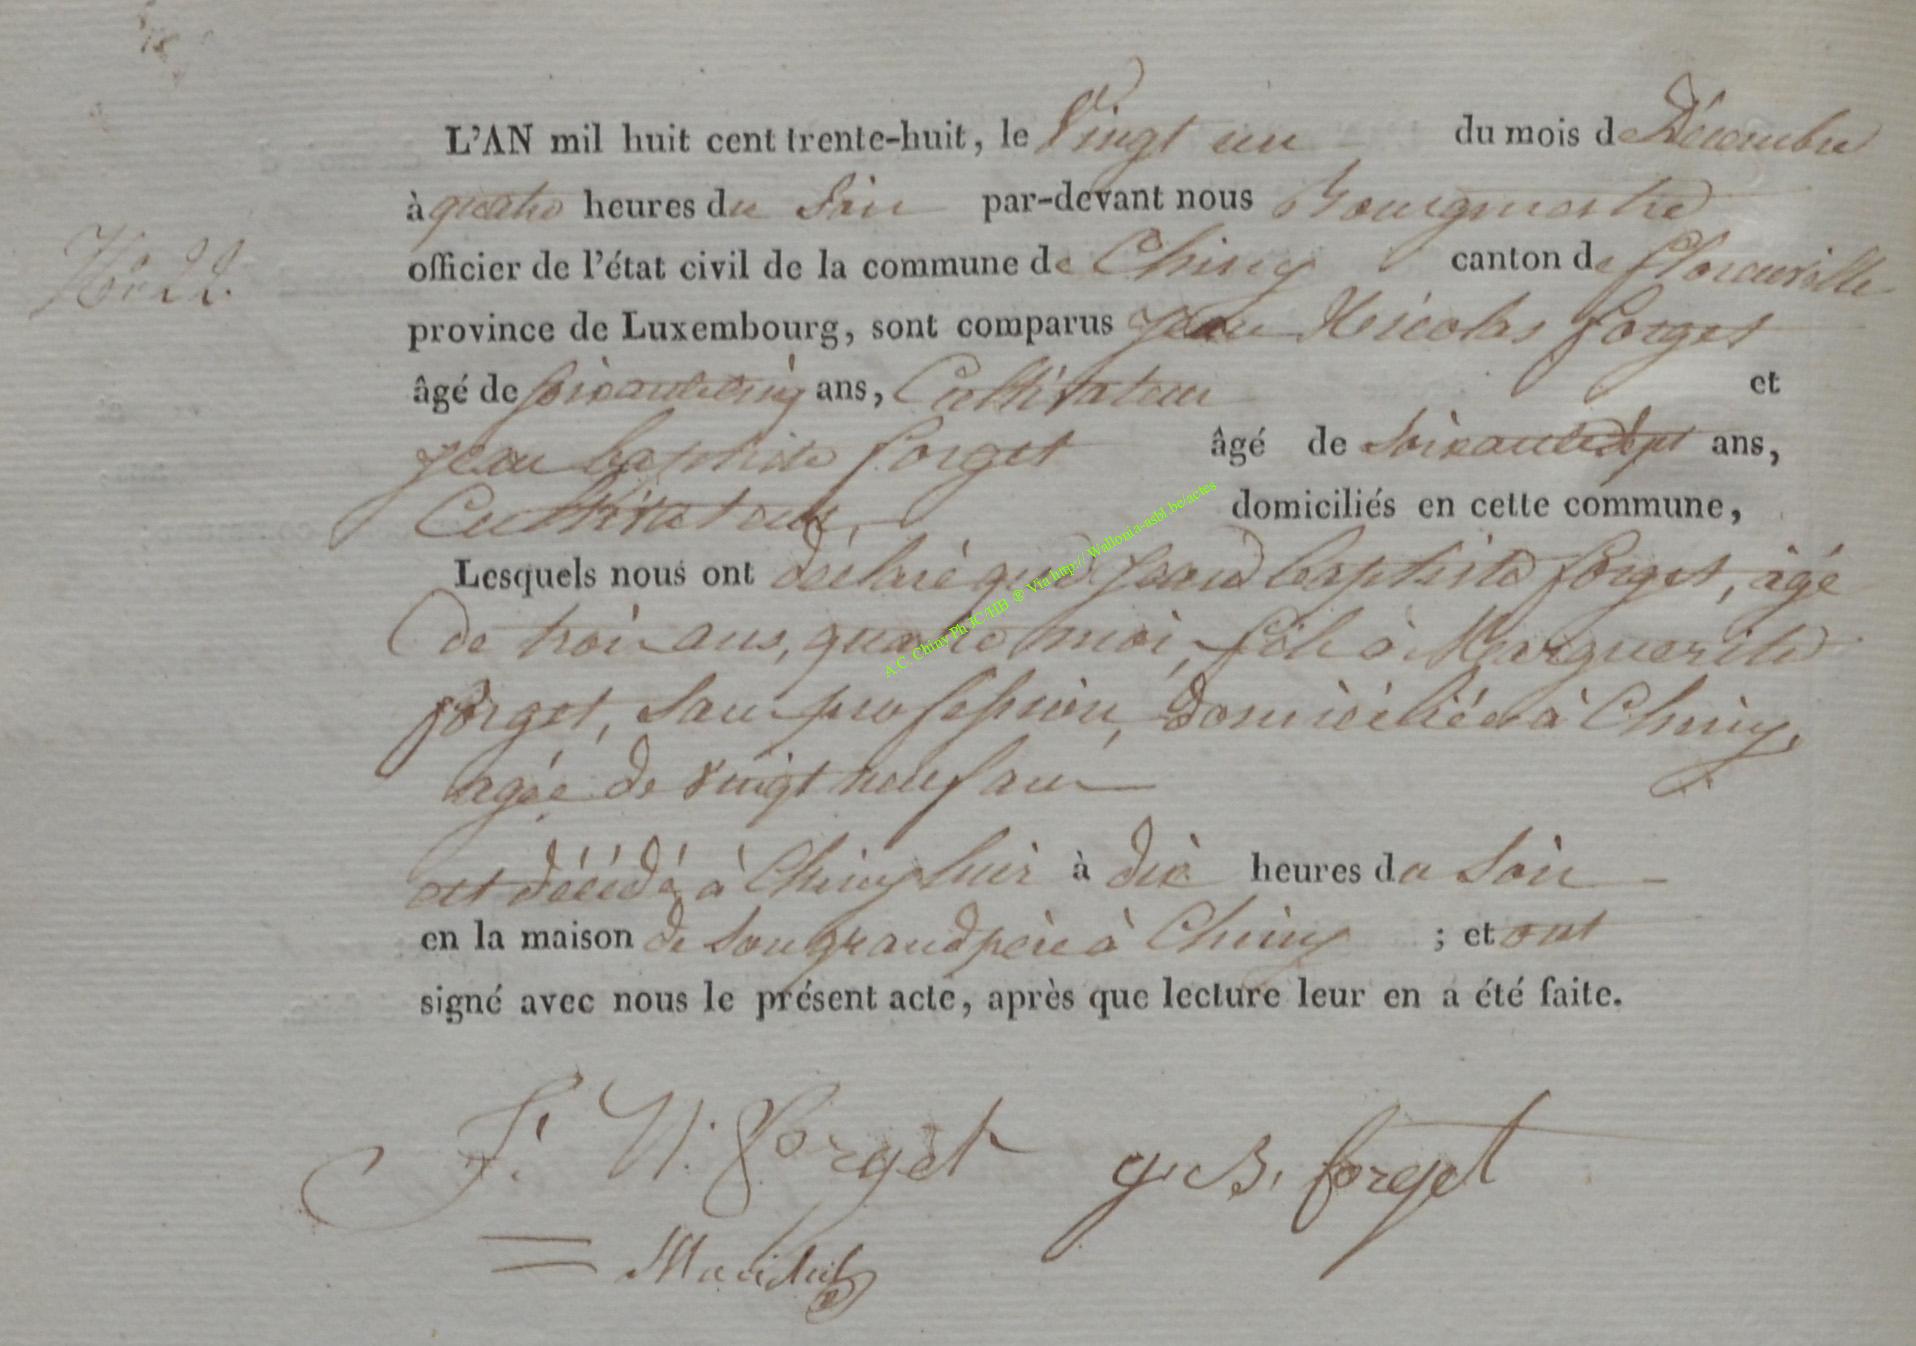 L'AN mil huit cent trente-huit, le Vingt un du mois de Décembre
à quatre heures du Soir par-devant nous Bourgmestre
No 22.
officier de l'état civil de la commune de Chiny canton de florenville
province de Luxembourg, sont comparus Jean Nicolas forget
âgé de soixante cinq ans, Cultivateur et
Jean baptiste forget âgé de soixante sept ans,
Cultivateur domiciliés en cette commune,
Lesquels nous ont déclaré que Jean baptiste forget, âgé
de troi ans, quatre moi, fils à Marguerite
forget, san profession, domiciliée à Chiny,
agée de vingt neuf an
est décédé à Chiny hier à dix heures du Soir
en la maison de son grand père à Chiny ; et ont
signé avec nous le présent acte, après que lecture leur en a été faite.
J. N. forget J. B. forget
A.C. Chiny Ph JC/HB @ Via http:// Wallonia-asbl.be/actes